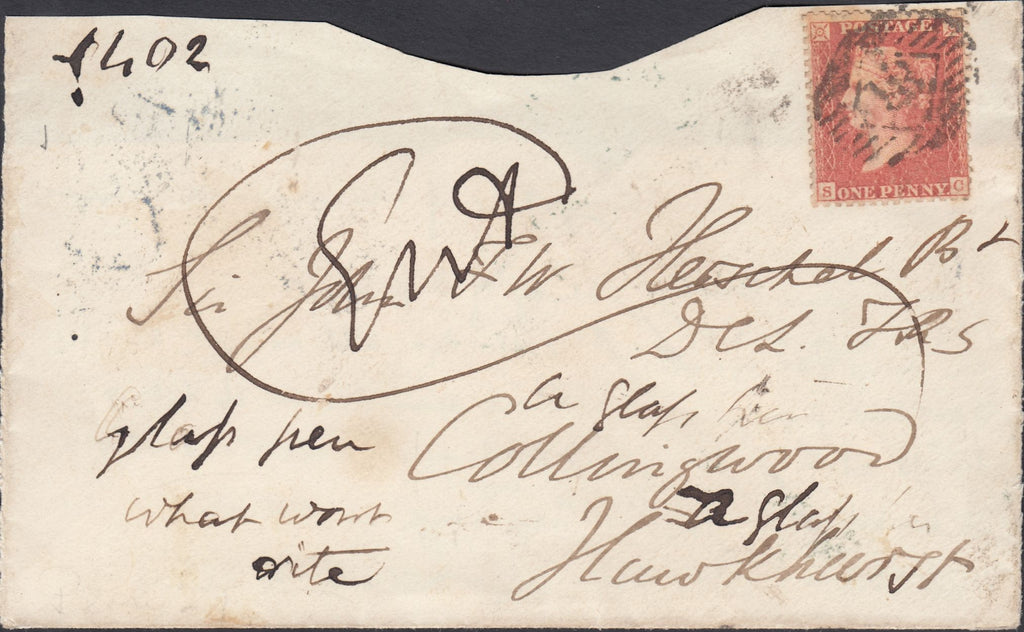 1402
POSTAGE
S ONE PENNY C
Sir John F W Herschel Bt
DCL. FRS
a glass pen
Collingwood
glass pen
a glass pen
what wont
Hawkhurst
rite